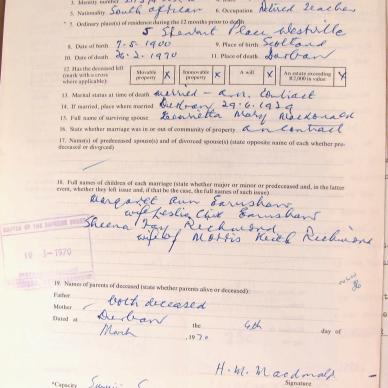 5. Nationality South African 6. Occupation Retired Teacher
7. Ordinary place(s) of residence during the 12 months prior to death
5 Stewart Place Westville
8. Date of birth 7-5-1900 9. Place of birth Scotland
10. Date of death 26-2-1970 11. Place of death Durban
12. Has the deceased left (mark with a cross where applicable): Movable property X Immovable property X A will X An estate exceeding R2,000 in value X
13. Marital status at time of death married - a.n. contract
14. If married, place where married Durban 29.6.1929
15. Full name of surviving spouse Henrietta Mary Macdonald
16. State whether marriage was in or out of community of property a.n. contract
17. Name(s) of predeceased spouse(s) and of divorced spouse(s) (state opposite name of each whether pre-deceased or divorced)
18. Full names of children of each marriage (state whether major or minor or predeceased and, in the latter event, whether they left issue and, if that be the case, the full names of such issue)
Margaret Ann Earnshaw
wife Leslie Earnshaw
Sheena Richmond
wife of Morris Keith Richmond
OF THE SUPREME
-3-1970
19. Names of parents of deceased (state whether parents alive or deceased):
Father
Mother both deceased
Dated at Durban the 4th day of
March , 1970
H. M. Macdonald
Signature
*Capacity